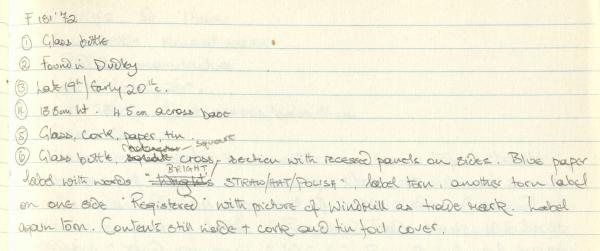 F 181'72
① Glass bottle
② Found in Dudley
③ Late 19th/Early 20th c.
④ 13.5cm ht. 4.5cm across base
⑤ Glass, cork, paper, tin.
⑥ Glass bottle, square cross-section with recessed panels on sides. Blue paper
label with words "BRIGHT STRAW/HAT/POLISH", label torn, another torn label
on one side 'Registered' with picture of windmill as trade mark. Label
again torn. Contents still inside + cork and tin foil cover.